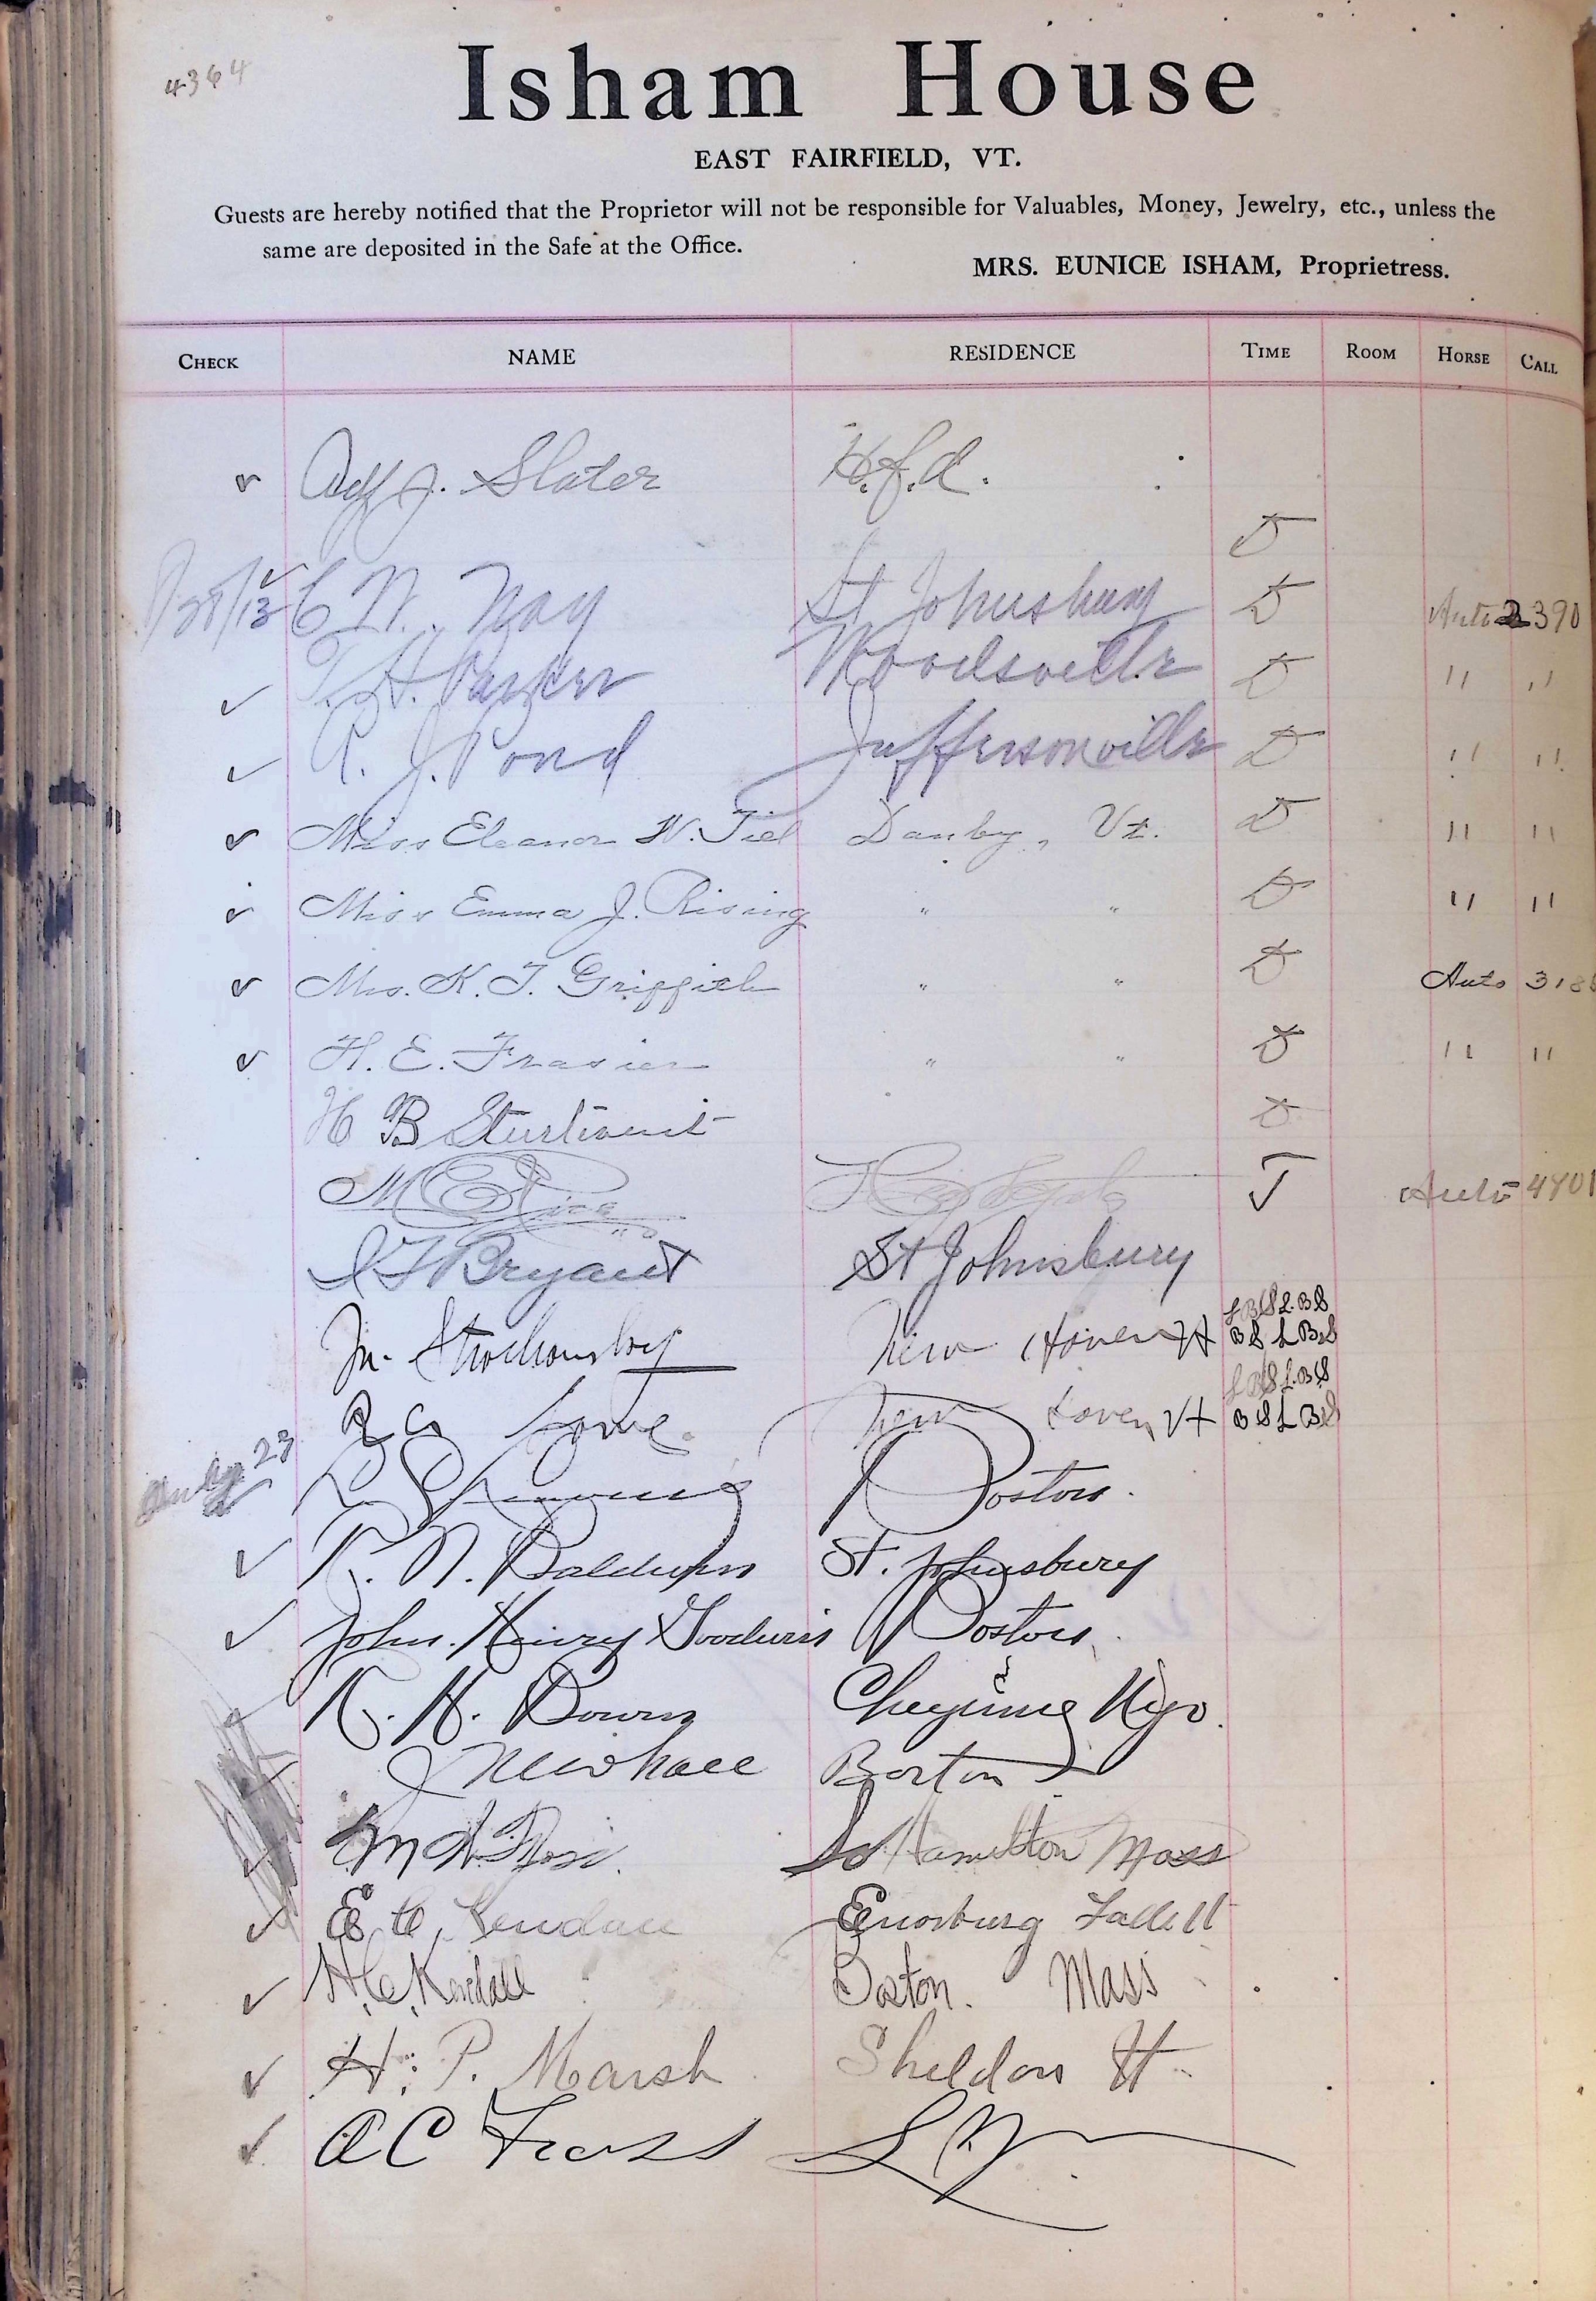 4364
Isham House
EAST FAIRFIELD, VT.
Guests are hereby notified that the Proprietor will not be responsible for Valuables, Money, Jewelry, etc., unless the
same are deposited in the Safe at the Office.
MRS. EUNICE ISHAM, Proprietress.
CHECK NAME RESIDENCE TIME ROOM HORSE CALL
J. Slater H.f.d.
D
C N. Nay St Johnsbury D Auto 2390
T. H. Parker Woodsville D " "
P. J. Pond Jeffersonville D " "
Miss Eleanor W. Tiel Danby, Vt. D " "
Miss Emma J. Rising " " D " "
Mrs. K. T. Griffith " " D Auto 318
H. E. Frasier " " D " "
H B Sturtivant D
M C Rice Auto 4401
Bryant St Johnsbury
New Haven Vt
New Haven Vt
July 23
Boston.
R. N. Baldwin St. Johnsbury
John Henry Goodwin Boston
R. H. Bowen Cheyenne Wyo.
J Newhall Boston
So Hamilton Mass
E C, Kendall Enosburg Falls Vt
H. C. Kendall Boston. Mass
H. P. Marsh Sheldon Vt
A C Fross